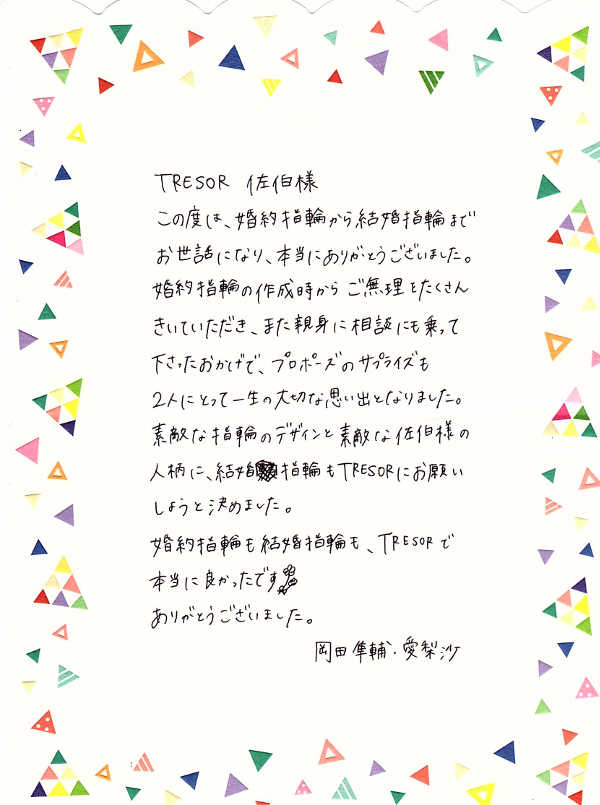 TRESOR 佐伯様
この度は、婚約指輪から結婚指輪まで
お世話になり、本当にありがとうございました。
婚約指輪の作成時から ご無理をたくさん
きいていただき、また親身に相談にも乗って
下さったおかげで、プロポーズのサプライズも
2人にとって一生の大切な思い出となりました。
素敵な指輪のデザインと素敵な佐伯様の
人柄に、結婚指輪もTRESORにお願い
しようと決めました。
婚約指輪も結婚指輪も、TRESORで
本当に良かったです
ありがとうございました。
岡田隼輔・愛梨沙